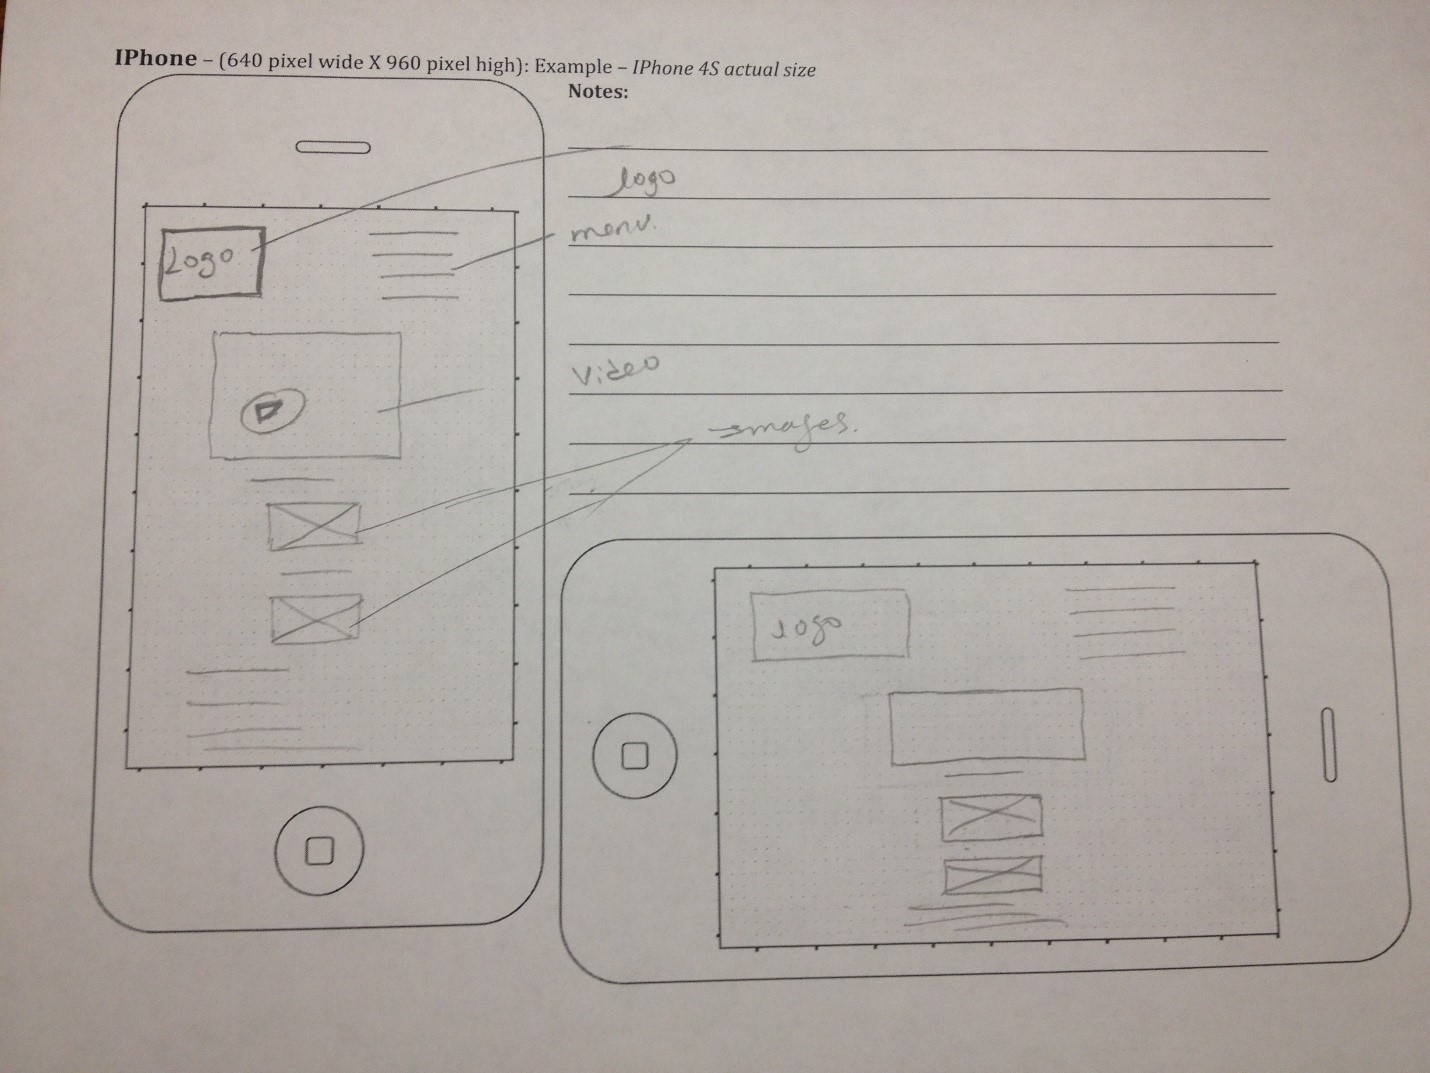 IPhone – (640 pixel wide X 960 pixel high): Example – IPhone 4S actual size
Notes:
logo
menu.
Video
Images.
Logo
logo